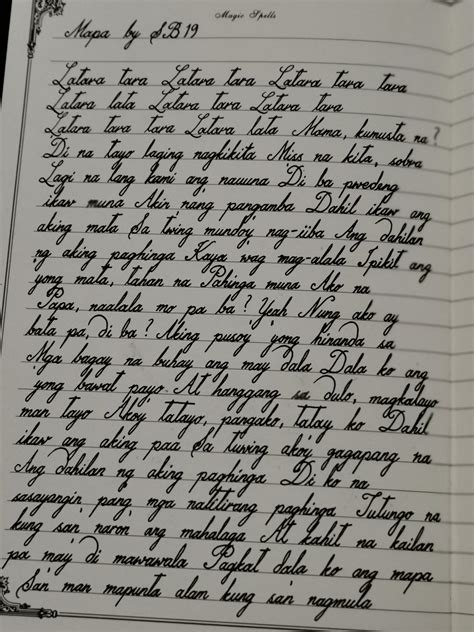 Magic Spells
Mapa by SB19
Latara tara Latara tara Latara tara tara
Latara lata Latara tara Latara tara
Latara tara tara Latara lata Mama, kumusta na?
Di na tayo laging nagkikita Miss na kita, sobra
Lagi na lang kami ang nauuna Di ba pwedeng
ikaw muna Akin nang pangamba Dahil ikaw ang
aking mata Sa twing mundoy nag-iiba Ang dahilan
ng aking paghinga Kaya wag mag-alala Ipikit ang
yong mata, tahan na Pahinga muna Ako na
Papa, naalala mo pa ba? Yeah Nung ako ay
bata pa, di ba? Aking pusoy yong hinanda sa
Mga bagay na buhay ang may dala Dala ko ang
yong bawat payo At hanggang sa dulo, magkalayo
man tayo Akoy tatayo, pangako, tatay ko Dahil
ikaw ang aking paa Sa tuwing akoy gagapang na
Ang dahilan ng aking paghinga Di ko na
sasayangin pang mga natitirang paghinga Tutungo na
kung san naron ang mahalaga At kahit na kailan
pa may di mawawala Pagkat dala ko ang mapa
San man mapunta alam kung san nagmula